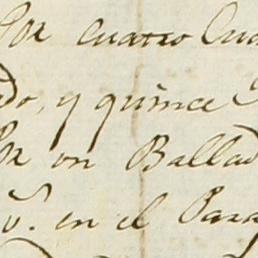 Por cuatro Cua
do, y quince
Por un Ballad
o. en el Para